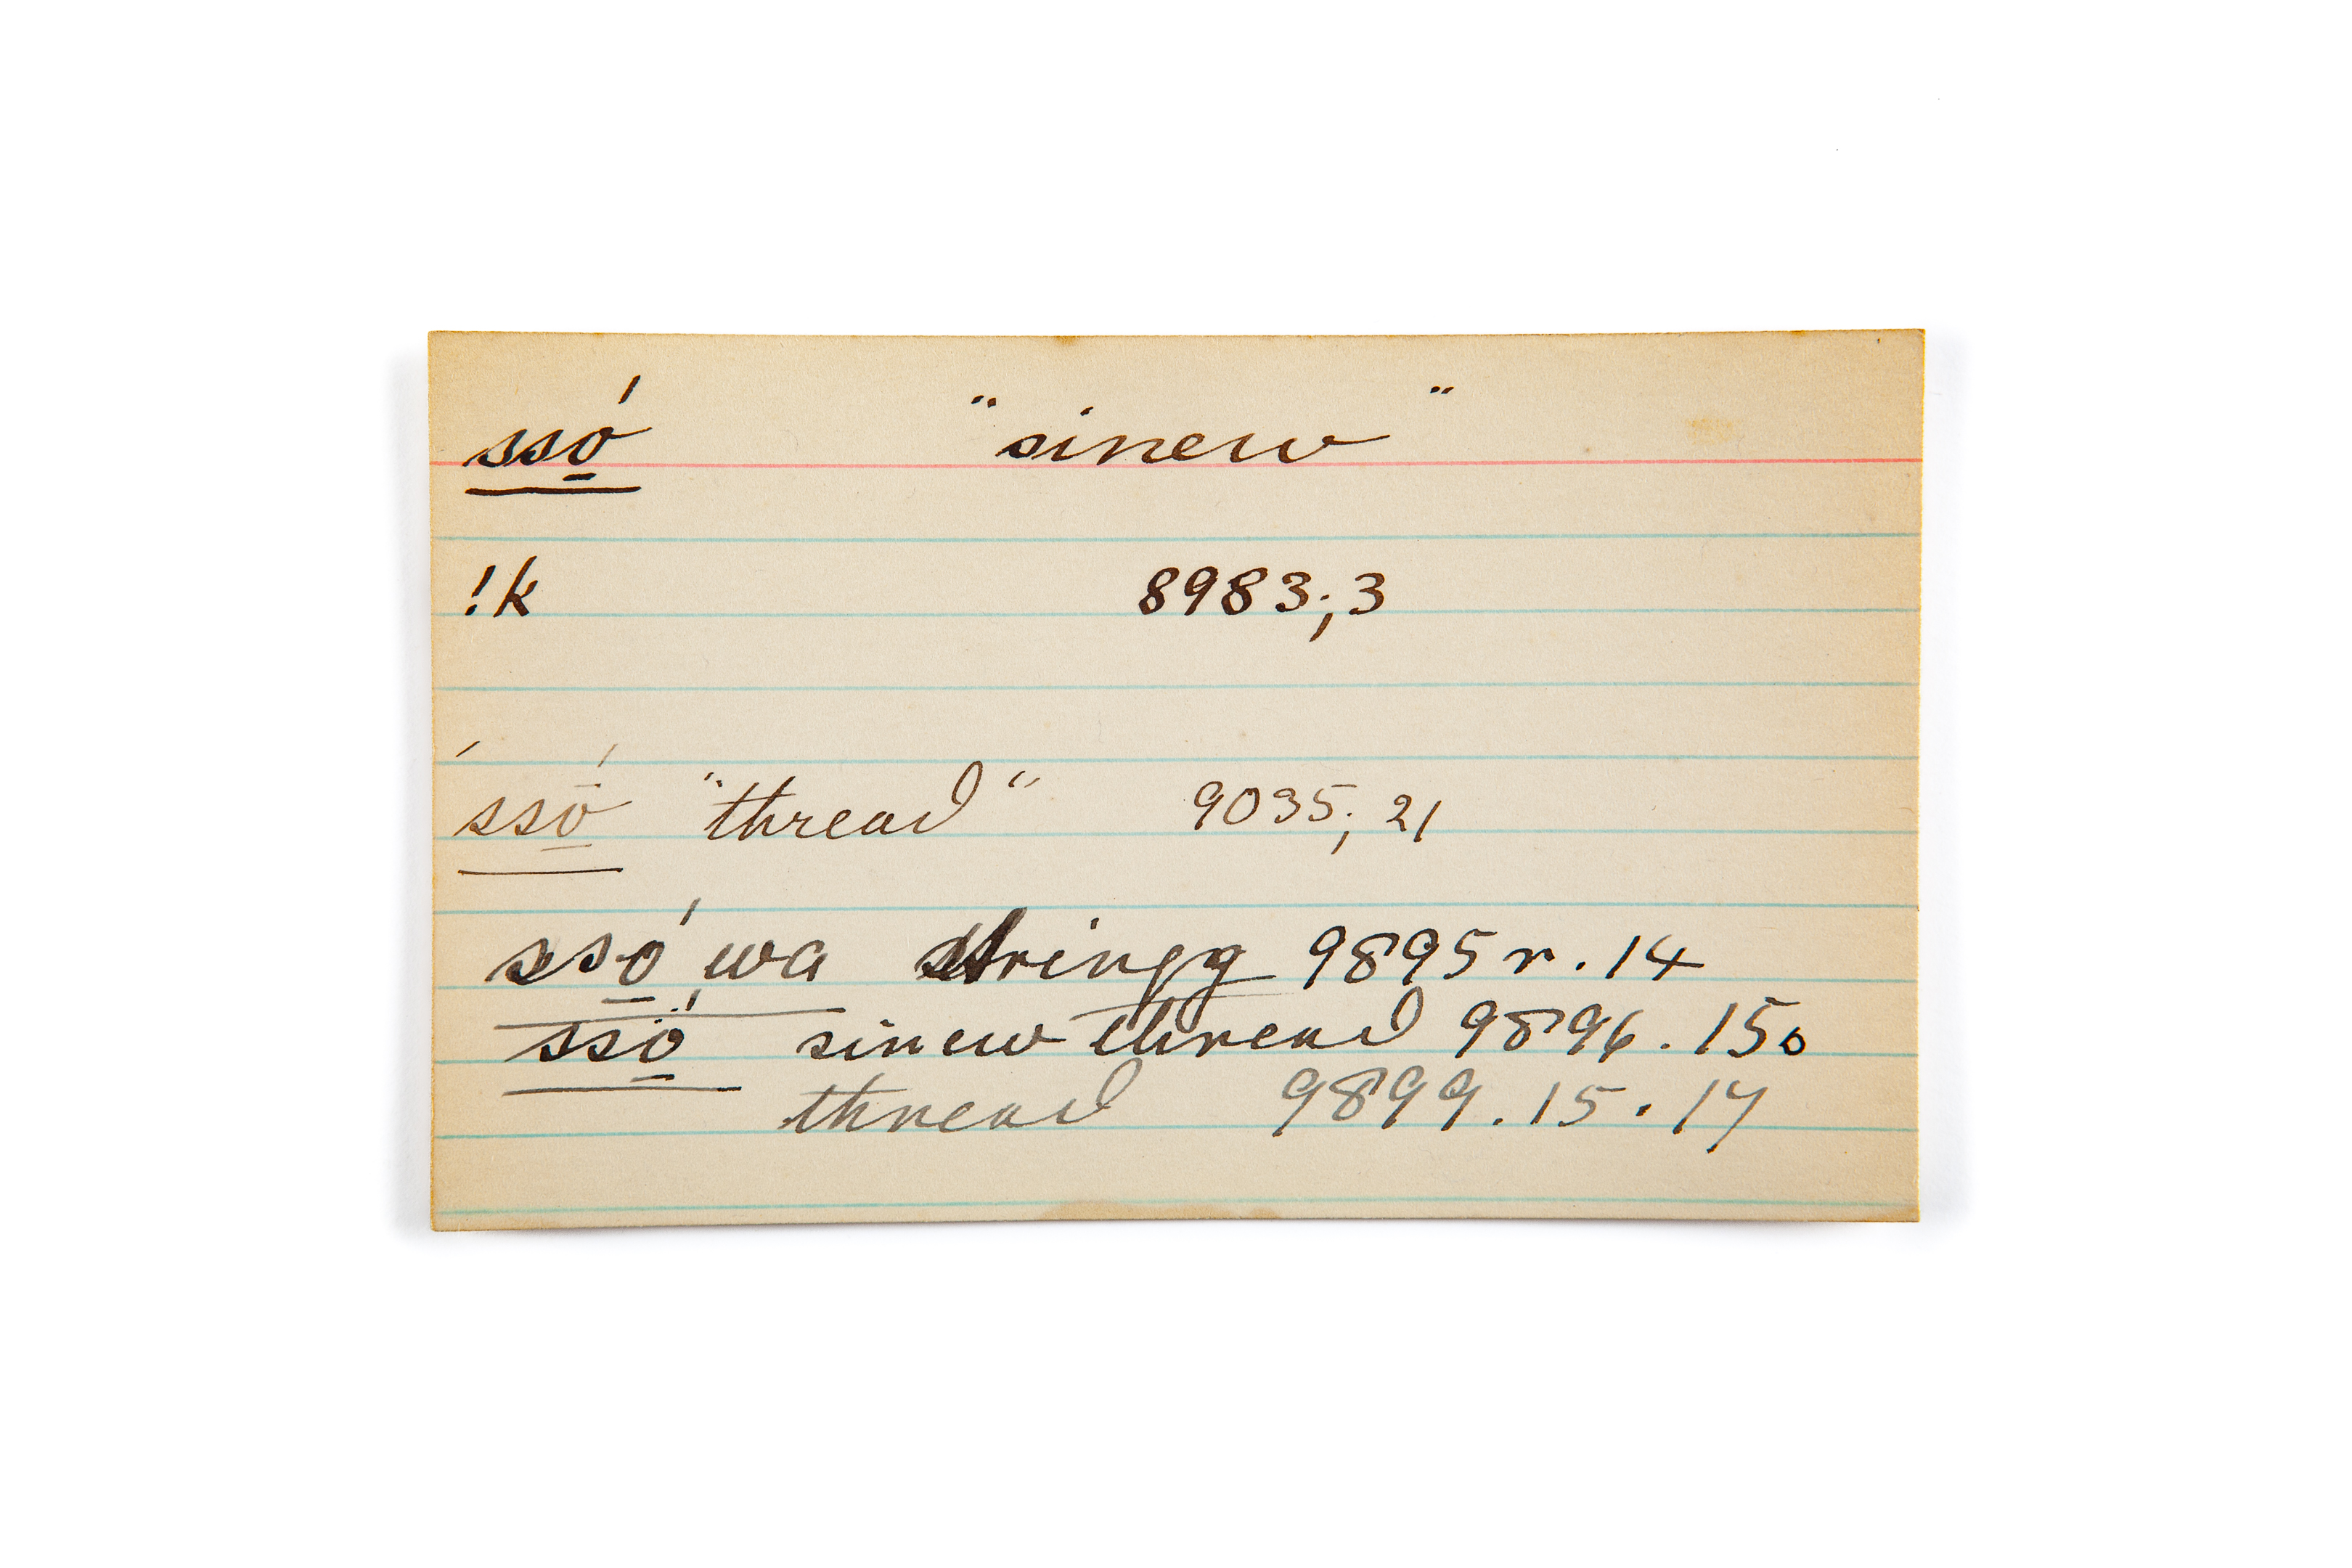 ssó̱ "sinew"
!k 8983;3
ssṓ̱ "thread" 9035;21
ssó̱ wa string 9895 r. 14
ssó̱ sinew thread 9896. 150
thread 9899. 15. 17